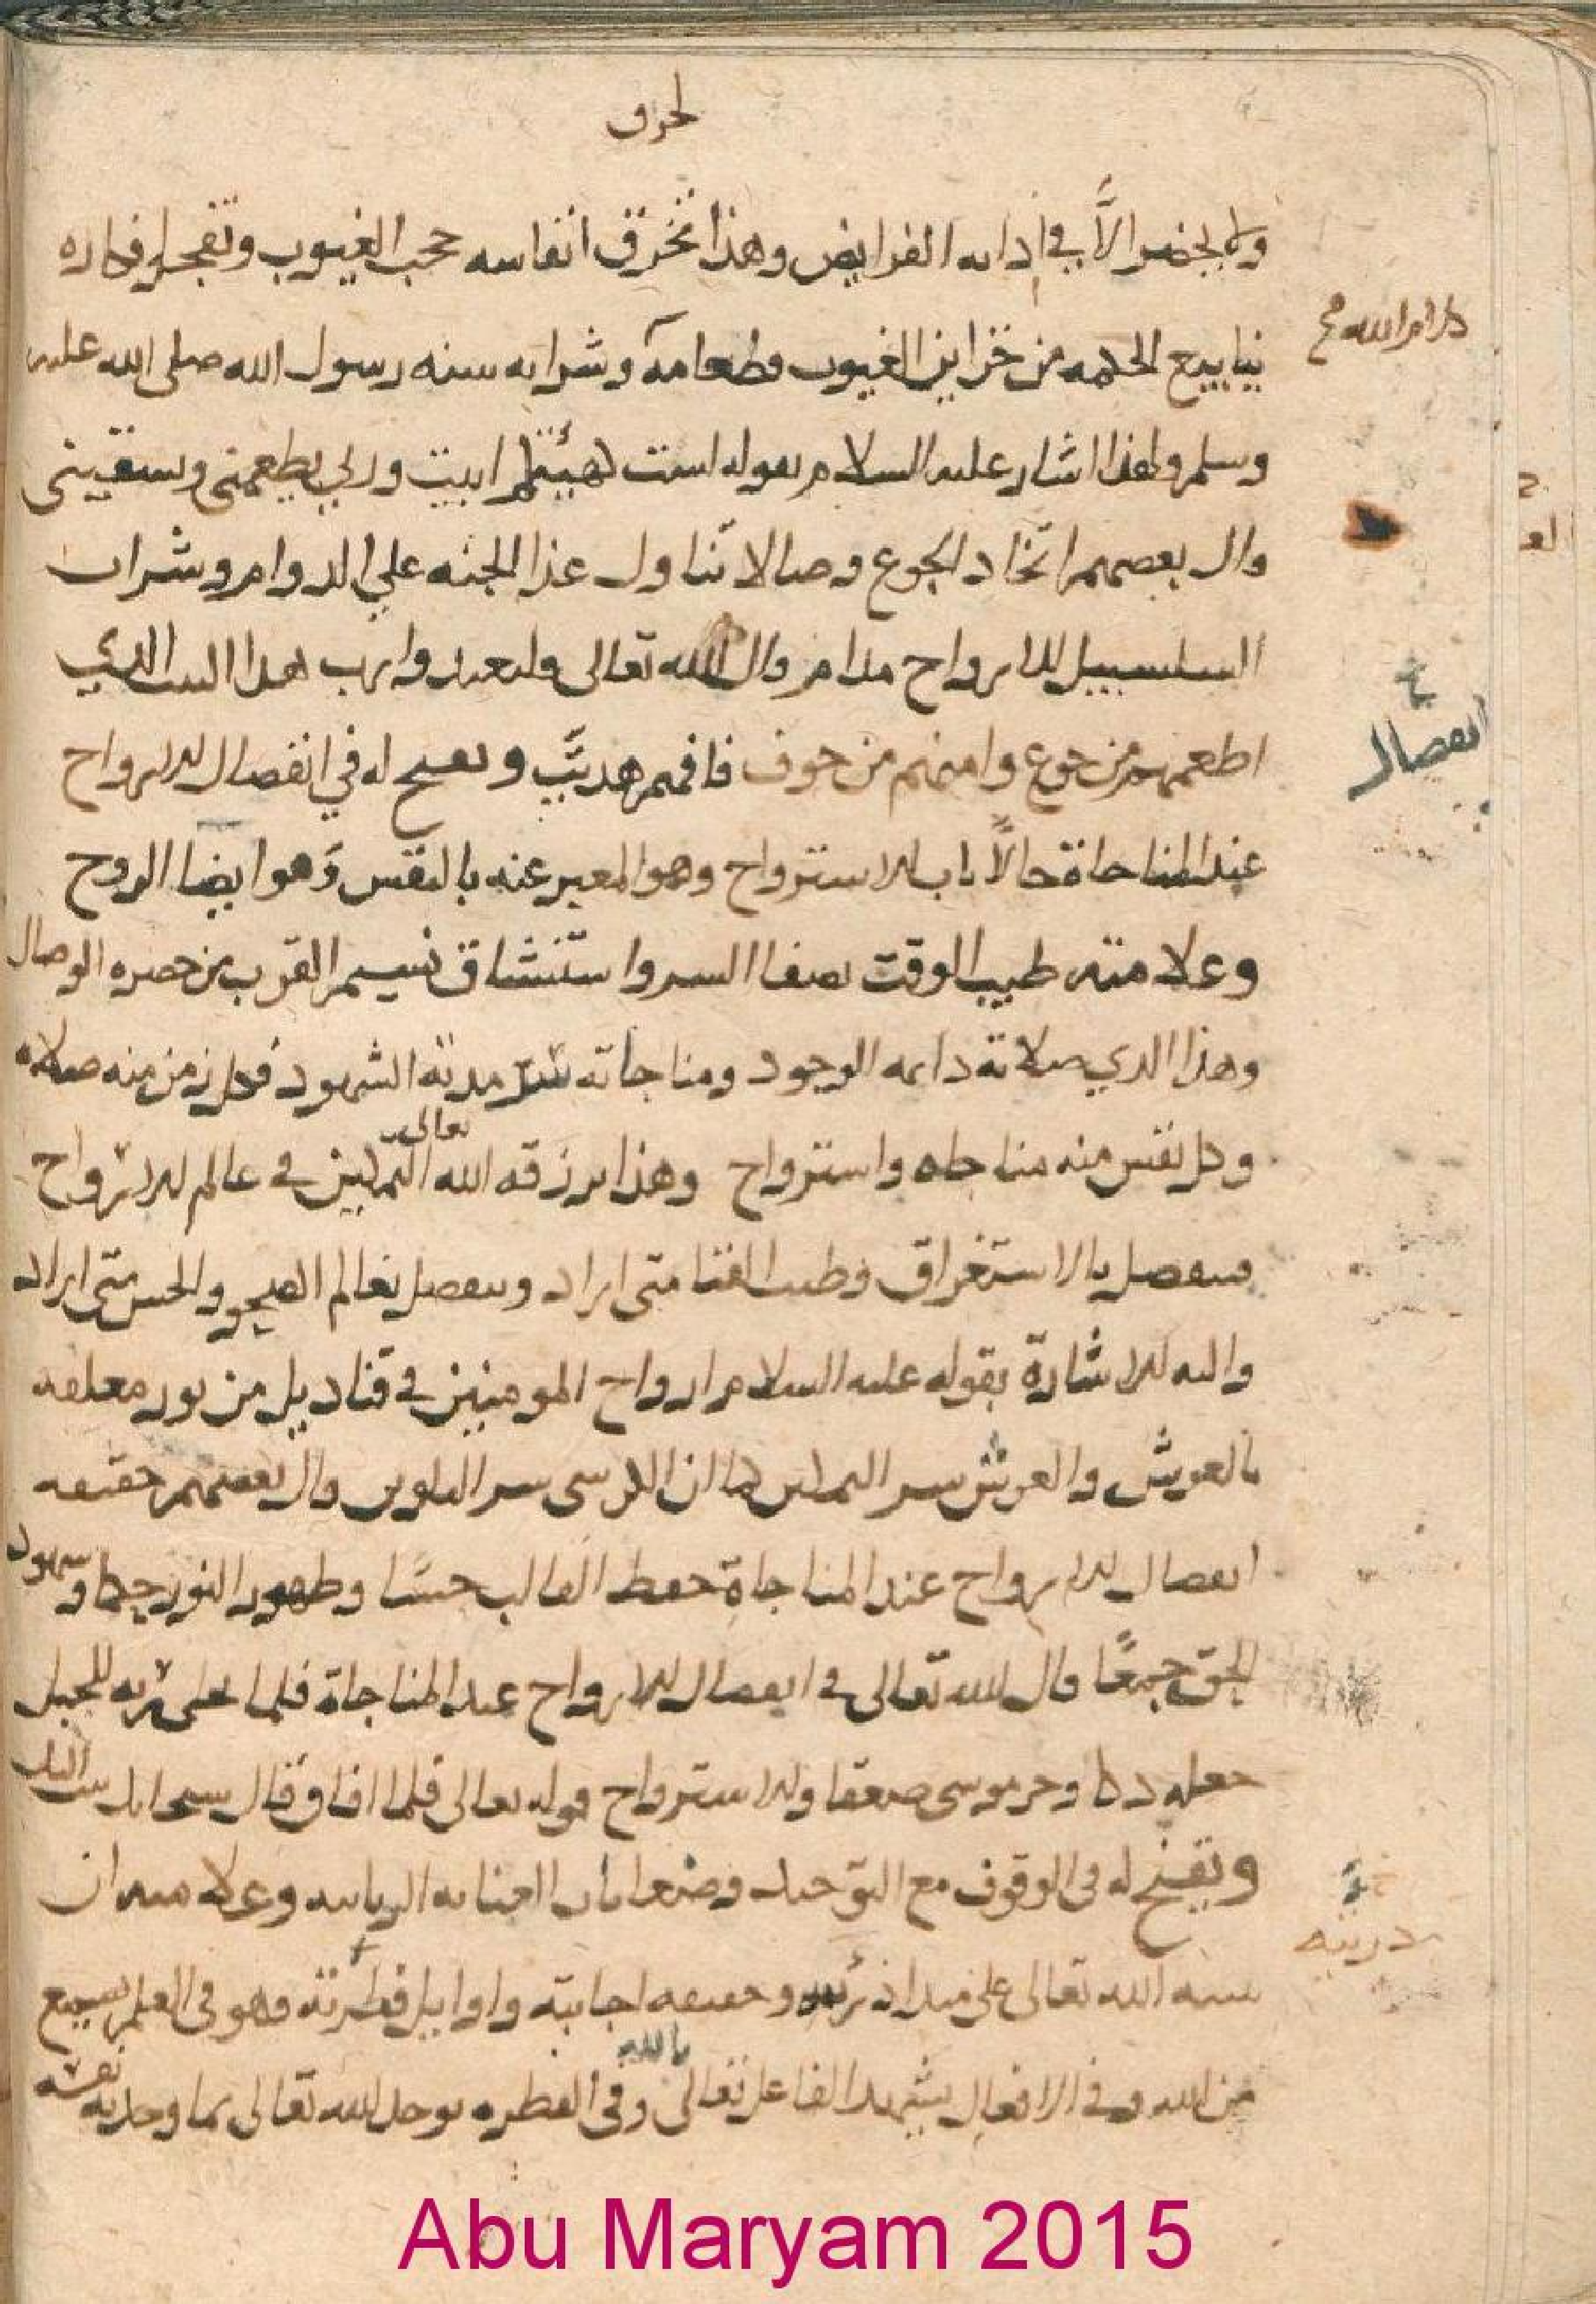 لحرف
ولا يحضر الاَّ في اداه الفرايض وهذا تخرق انفاسه حجب الغيوب وتفجر افكاره
ذكر امر الله مح
ينابيع الحكمه من خزاين الغيوب وطعامه وشرابه سنه رسول الله صلى الله عليه
وسلم ولهذا اشار عليه السلام بقوله لست كهيئتكم ابيت وربي يطعمني ويسقيني
وال بعضهم اتخاذ الجوع وصالا تناول غذا الجنه علي الدوام وشراب
السلسبيل للارواح مدام وال الله تعالى فليعبدوا رب هذا البيت الذي
اطعمهم من جوع وامنهم من خوف فافهم هديتَ ويفتح له في انفصال الارواح
انفصال
عند المناجاة حالاً باب الاسترواح وهو المعبر عنه بالنفس وَهو ايضا الروح
وعلامته طيب الوقت بصفا السر واستنشاق نسيم القرب من حضره الوصال
وهذا الذي صلاته دايمه الوجود ومناجاته سرمدية الشهود فكل زمن منه صلاه
وكل نفس منه مناجاه واسترواح وهذا يرزقه الله تعالى التمكين في عالم الارواح
فينفصل بالاستغراق وطيب الفنا متى اراد ويتصل بعالم الصحو والحس متى اراد
واليه الاشارة بقوله عليه السلام ارواح المومنين في قناديل من نور معلقه
بالعرش والعرش سر التمكين كما ان الكرسي سر التلوين وال بعضهم حقيقه
انفصال الارواح عند المناجاة حفظ القالب حسًا وظهور النور حكما وشهود
الحق جمعًا قال الله تعالى في انفصال الارواح عند المناجاة فلما تجلى ربه للجبل
جعله دكا وخر موسى صعقا والاسترواح قوله تعالى فلما افاق قال سبحانك تبت اليك
ويفتح له في الوقوف مع التوحيد وضعا باب العنايه الربانيه وعلامته ان
ينبه الله تعالى على مبدا ذريته وحقيقه اجابته واوايل فطرته فهو في العلم يسمع
ذريته
من الله وفي الافعال يشهد الفاعل تعالى وفي الفطره بالله يوحد الله تعالى بما وحد به نفسه
Abu Maryam 2015